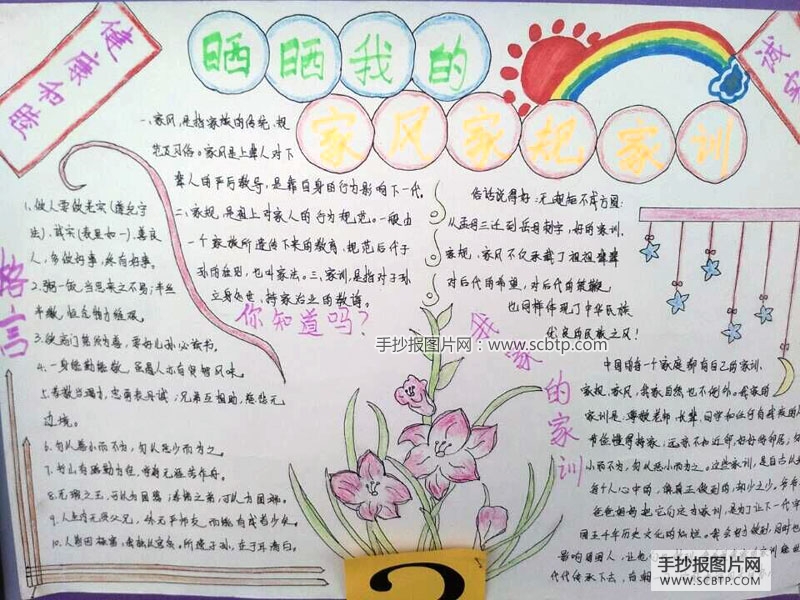 健康和睦
晒晒我的
家风家规家训
一、家风,是指家族的传统、规
范及习俗。家风是上辈人对下
辈人的严厉教导,是靠自身的行为影响下一代。
二、家规,是祖上对家人的行为规范。一般由
一个家族所遗传下来的教育、规范后代子
孙的准则,也叫家法。三、家训,是指对子孙
立身处世、持家治业的教诲。
你知道吗?
俗话说得好:无规矩不成方圆。
从孟母三迁到岳母刺字,好的家训、
家规、家风不仅承载了祖祖辈辈
对后代的希望,对后代的鞭策,
也同样体现了中华民族
优良的民族之风!
格言
1.做人要做老实(遵纪守
法)、诚实(表里如一)、善良
人,多做好事,终有好事。
2.粥一饭,当思来之不易;半丝
半缕,恒念物力维艰。
3.欲高门第须为善,要好儿孙必读书。
4.一身能勤能敬,
5.孝敬当竭力,忠勇表丹诚;兄弟互相助,慈悲无
边境。
6.勿以善小而不为,勿以恶小而为之。
7.书山有路勤为径,学海无涯苦作舟。
9.人生内无贤父兄,外无严师友,而能有成者少矣。
我家的家训
中国的每一个家庭都有自己的家训、
家规、家风,我家自然也不例外。我家的
家训是:尊敬老师、长辈、同学和任何
节俭懂得持家;远亲不如近邻,好好待邻居;
小而不为,勿以恶小而为之。这些家训,是自古以
每个人心中的,但真正做到的,却少之少。
爸爸妈妈把它向这方家训,是为了让下一代
国五千年历史文化的灿烂。我会努力做到,同时也
影响周围人,让他
代代传承下去,
手抄报图片网:www.scbtp.com
手抄报图片网
WWW.SCBTP.COM